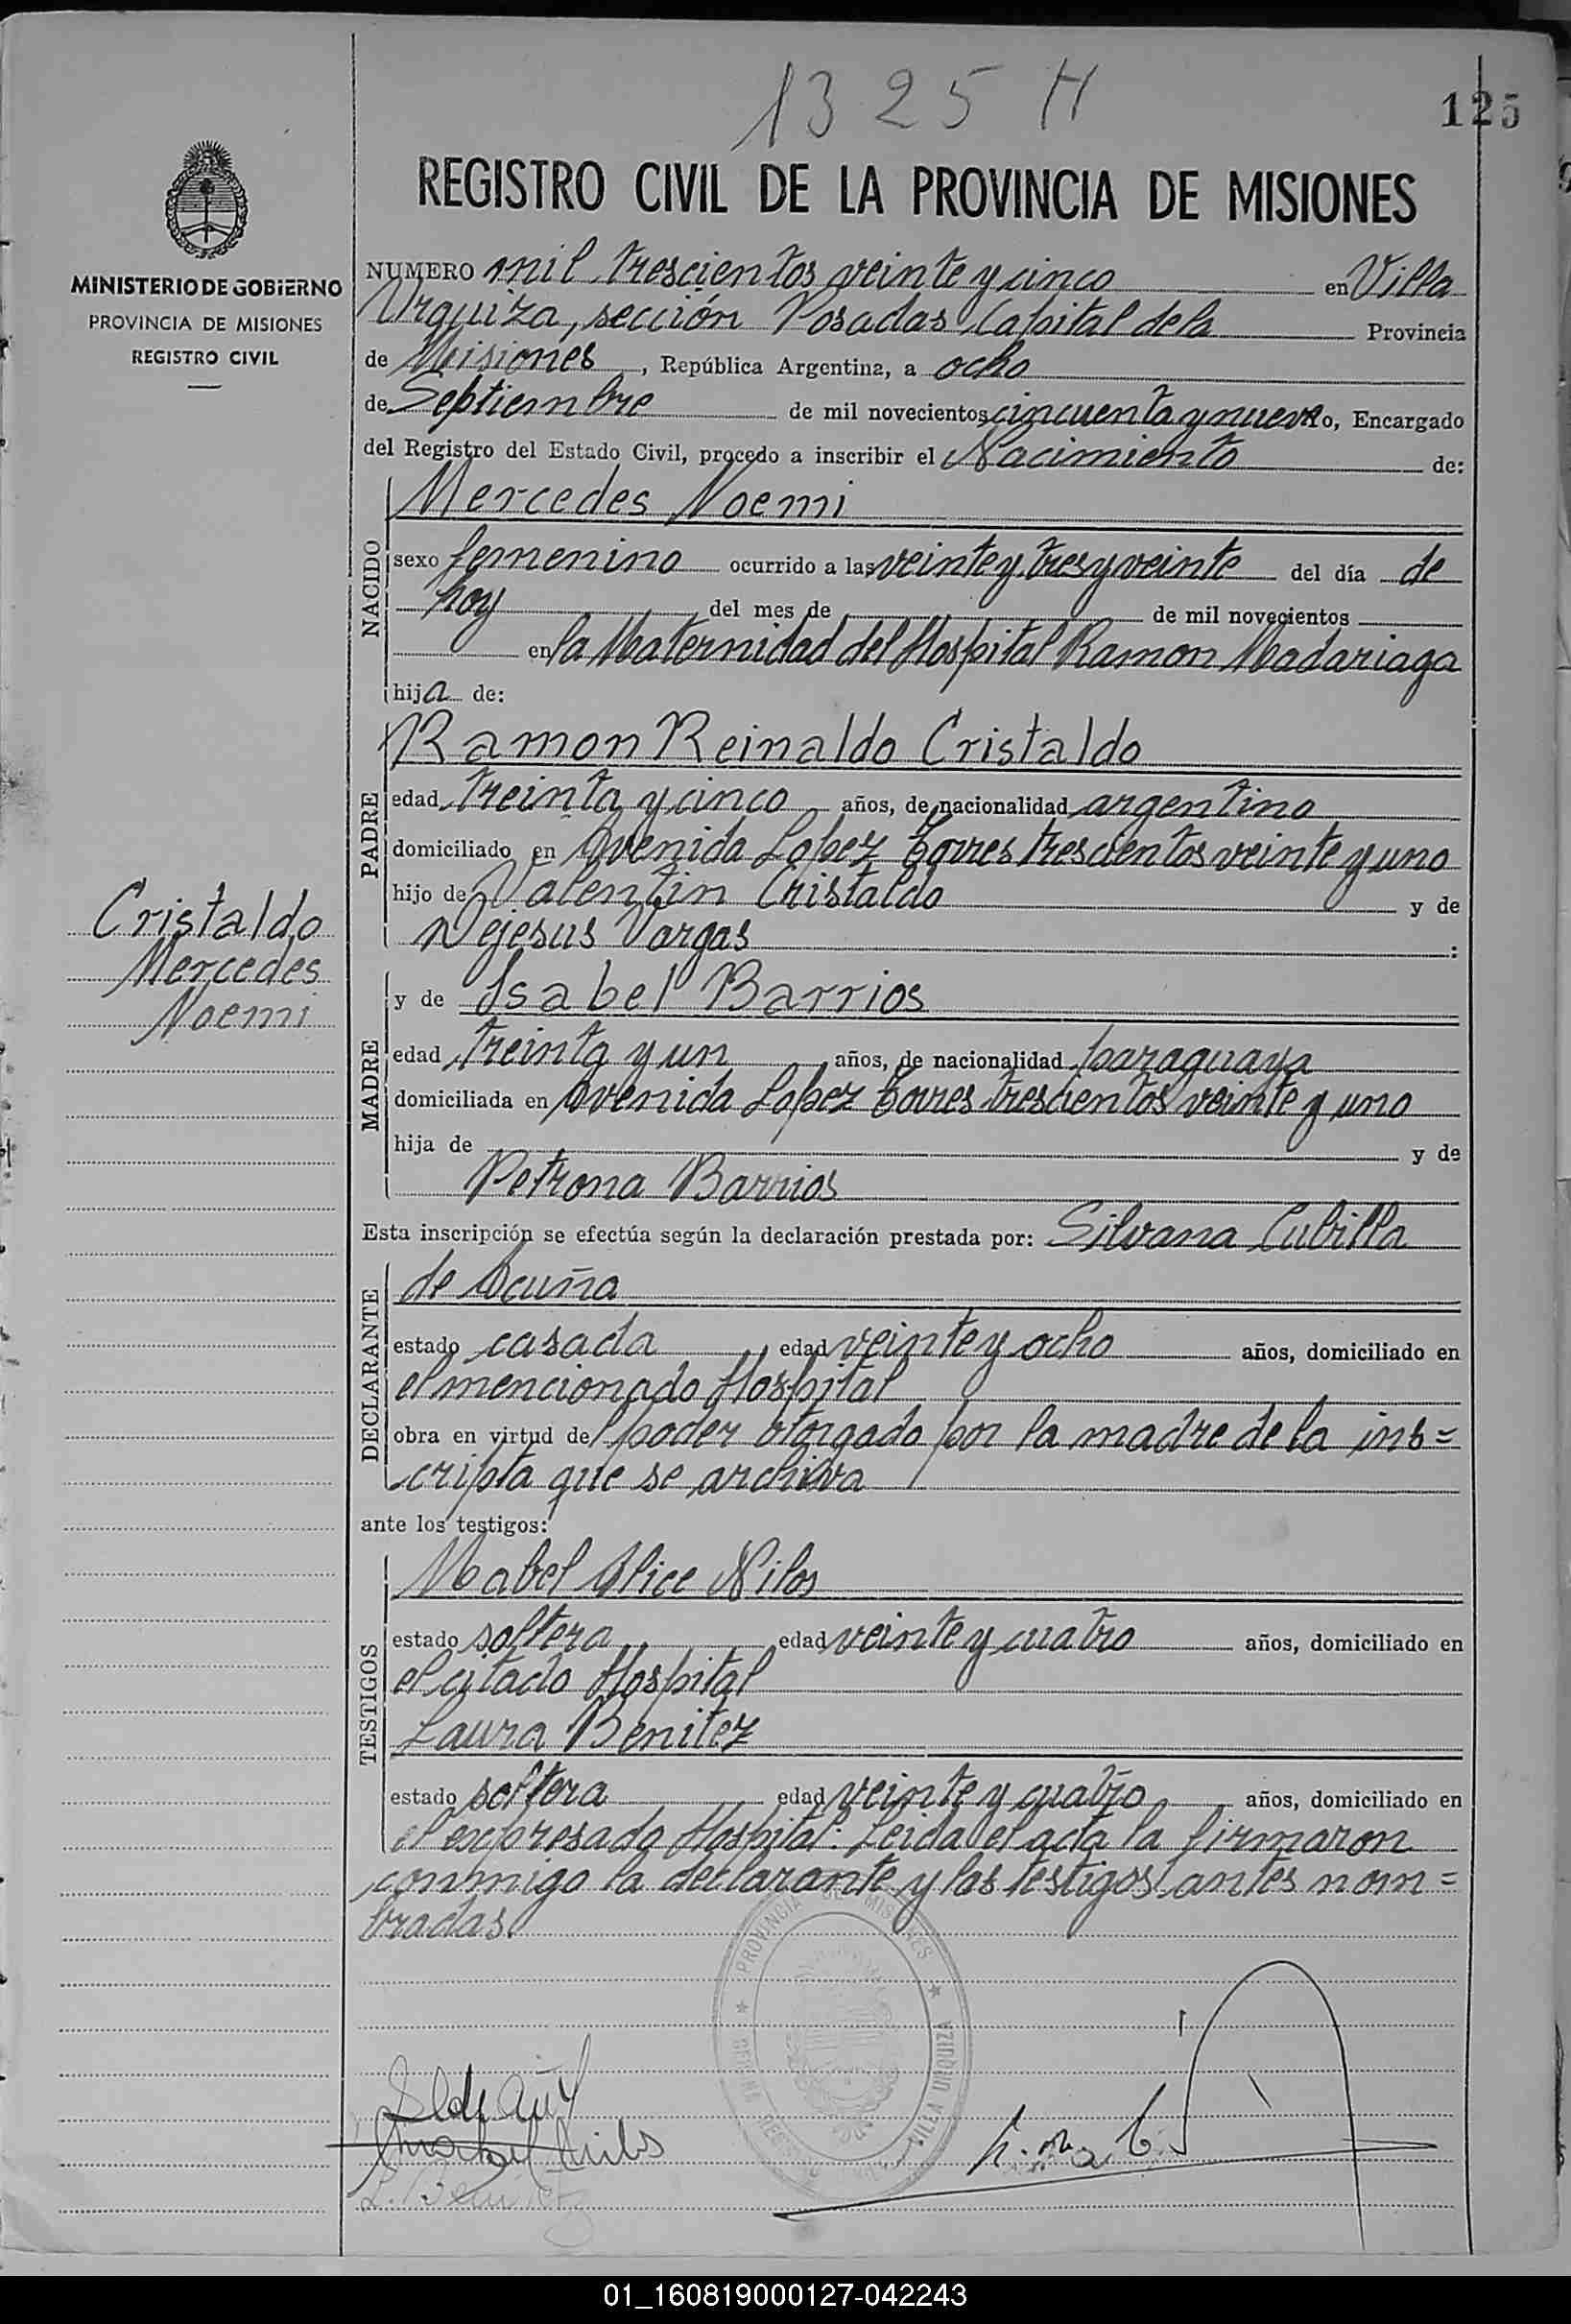 1325 H
125
REGISTRO CIVIL DE LA PROVINCIA DE MISIONES
MINISTERIO DE GOBIERNO
PROVINCIA DE MISIONES
REGISTRO CIVIL
NUMERO mil trescientos veinte y cinco en Villa
Urquiza, sección Posadas Capital de la Provincia
de Misiones, República Argentina, a ocho
de Septiembre de mil novecientos cincuenta y nueve o, Encargado
del Registro del Estado Civil, procedo a inscribir el Nacimiento de:
NACIDO
Mercedes Noemi
sexo femenino ocurrido a las veinte y tres y veinte del día de
hoy del mes de de mil novecientos
en la Maternidad del Hospital Ramon Madariaga
hija de:
PADRE
Ramon Reinaldo Cristaldo
edad treinta y cinco años, de nacionalidad argentino
domiciliado en Avenida Lopez Torres trescientos veinte y uno
hijo de Valentin Cristaldo y de
Dejesus Vargas :
Cristaldo
Mercedes
Noemi
MADRE
y de Isabel Barrios
edad treinta y un años, de nacionalidad paraguaya
domiciliada en Avenida Lopez Torres trescientos veinte y uno
hija de y de
Petrona Barrios
Esta inscripción se efectúa según la declaración prestada por: Silvana Cubilla
DECLARANTE
de Acuña
estado casada edad veinte y ocho años, domiciliado en
el mencionado Hospital
obra en virtud del poder otorgado por la madre de la ins=
cripta que se archiva
ante los testigos:
TESTIGOS
Mabel Alice Nilos
estado soltera edad veinte y cuatro años, domiciliado en
el citado Hospital
Laura Benitez
estado soltera edad veinte y cuatro años, domiciliado en
el expresado Hospital: Leida el acta la firmaron
conmigo la declarante y los testigos antes nom=
bradas.
PROVINCIA DE MISIONES
VILLA URQUIZA
L. Benitez
01_160819000127-042243